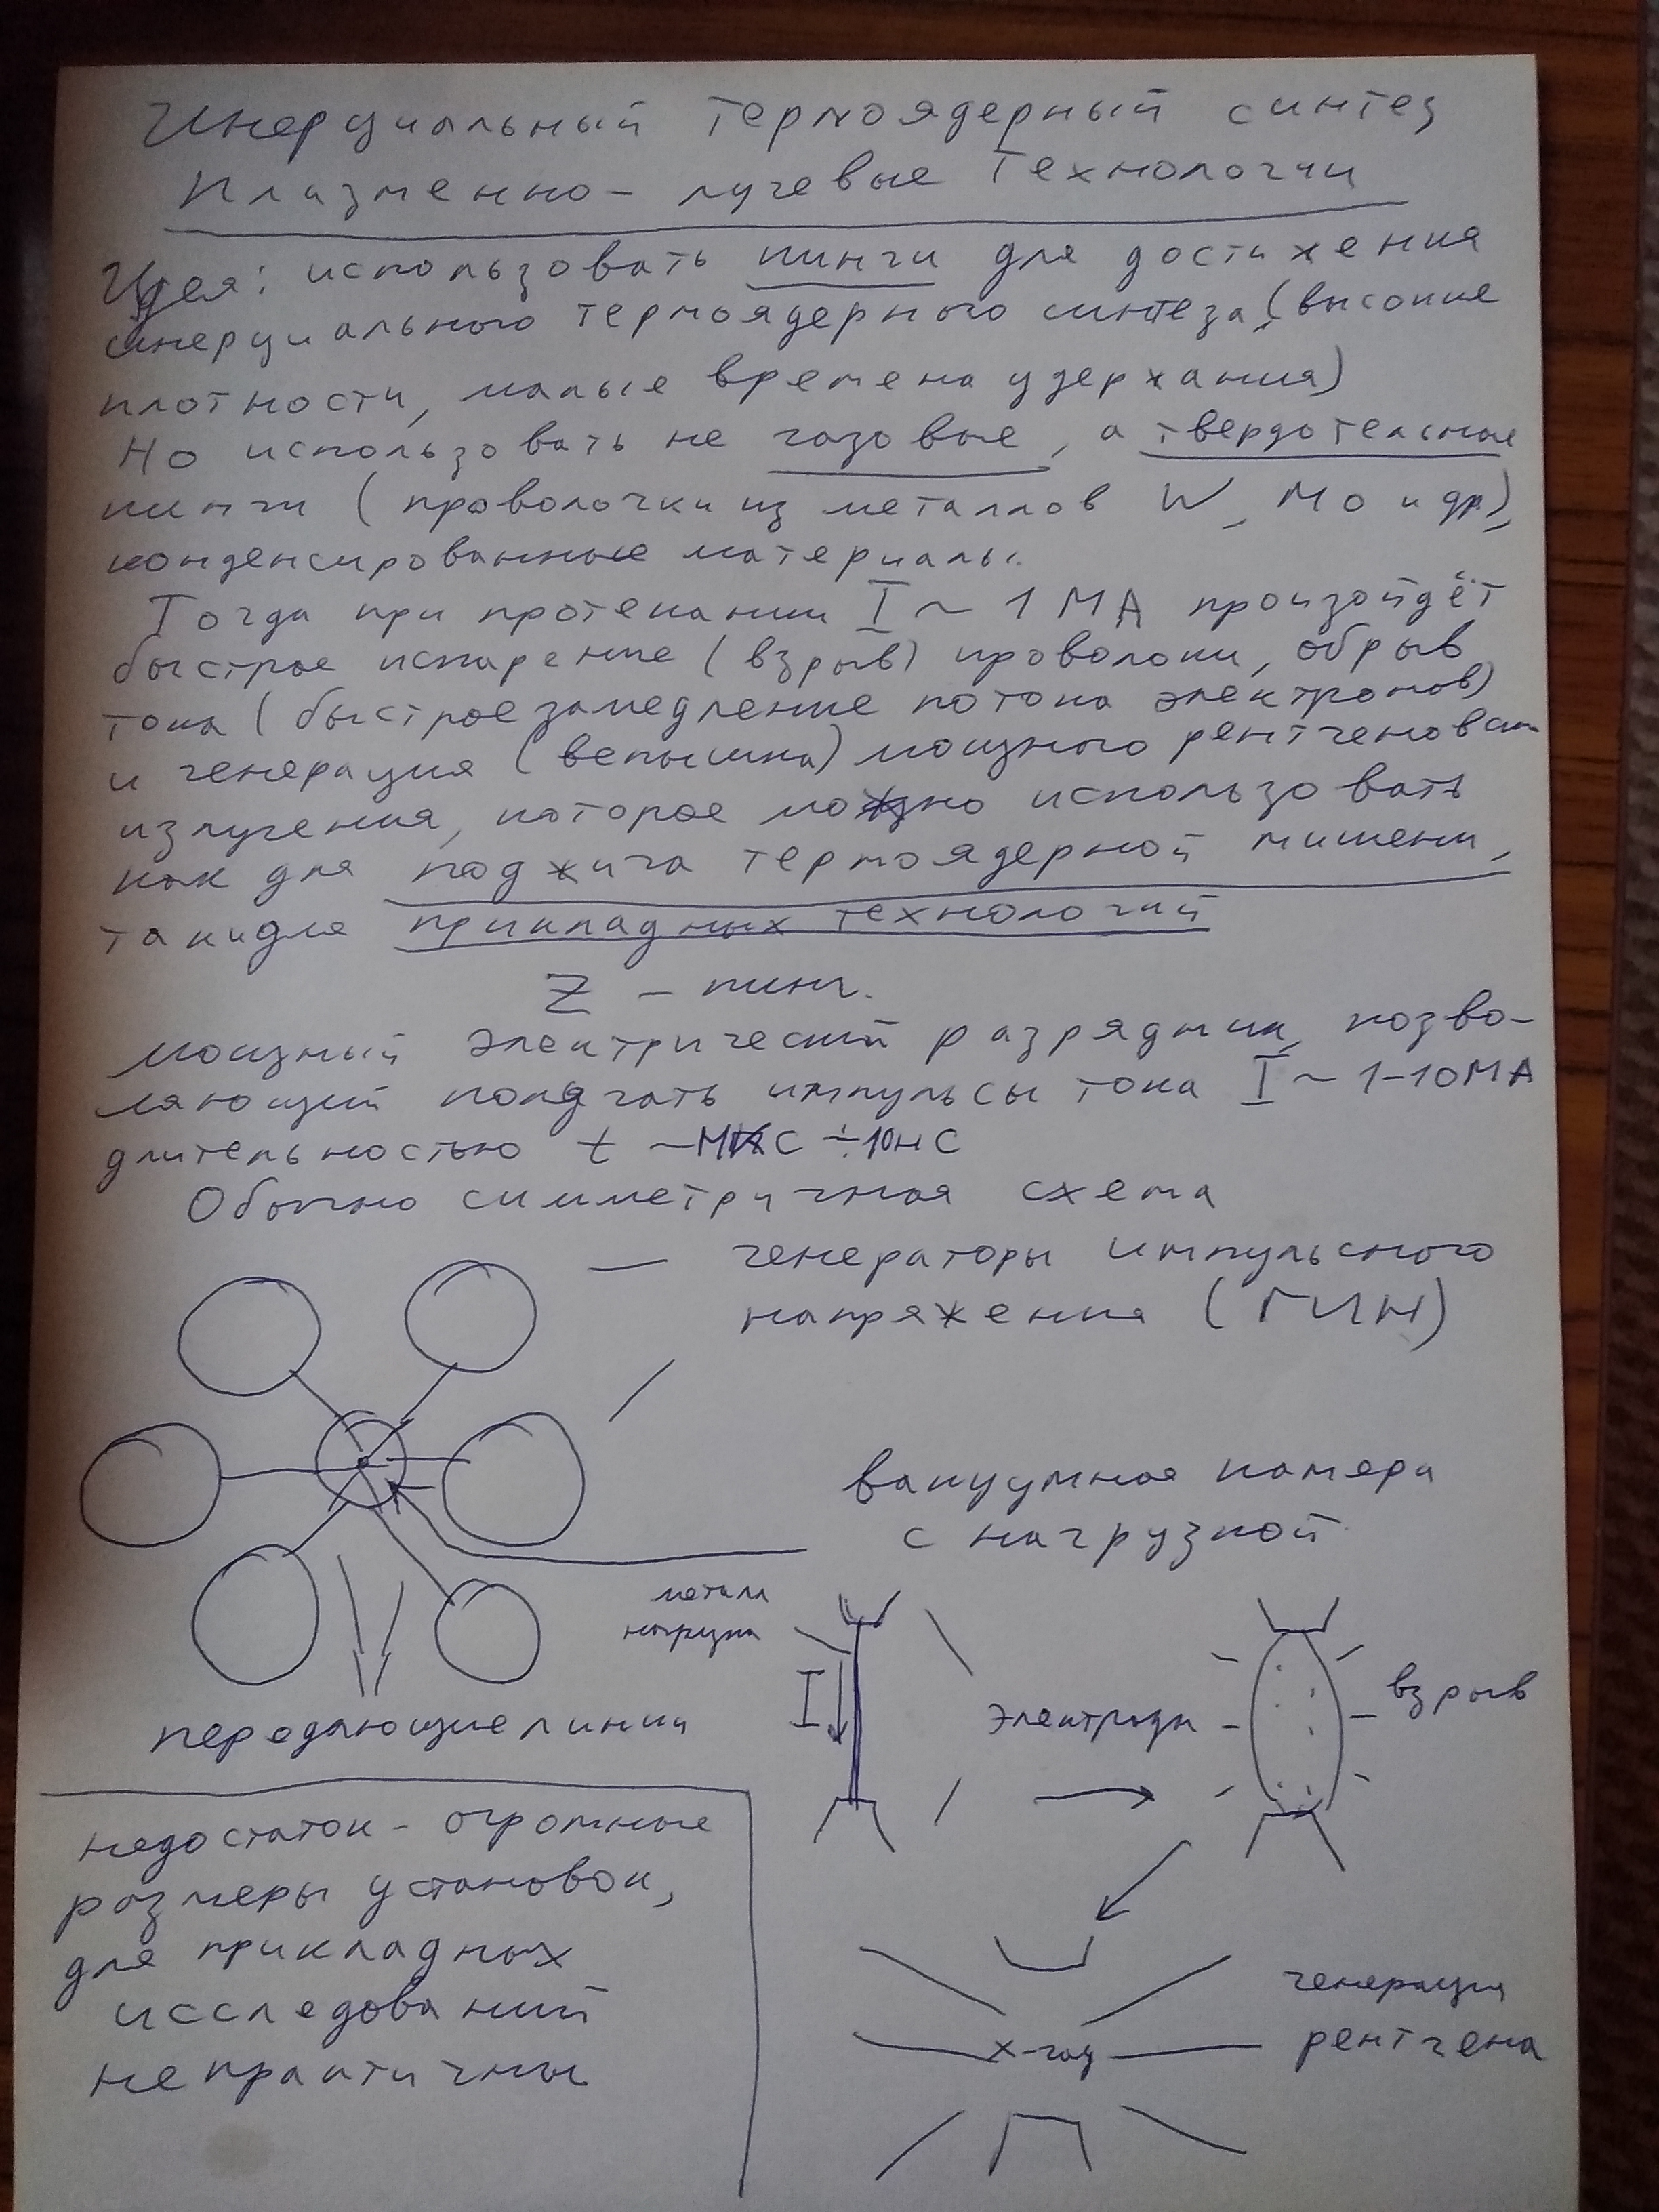 Инерциальный термоядерный синтез
Плазменно-лучевые технологии
Идея: использовать пинчи для достижения
инерциального термоядерного синтеза (высокие
плотности, малые времена удержания)
Но использовать не газовые, а твердотельные
пинчи (проволочки из металлов W, Mo и др),
конденсированные материалы.
Тогда при протекании I ~ 1 МА произойдёт
быстрое испарение (взрыв) проволоки, обрыв
тока (быстрое замедление потока электронов)
и генерация (вспышка) мощного рентгеновск
излучения, которое можно использовать
как для поджига термоядерной мишени,
так и для прикладных технологий
Z - пинч.
мощный электрический разрядник, позво-
ляющий получать импульсы тока I ~ 1-10 МА
длительностью t ~ мкс ÷ 10нс
Обычно симметричная схема
генераторы импульсного
напряжения (ГИН)
вакуумная камера
с нагрузкой
металл
нагрузка
I
электроды
взрыв
передающие линии
недостаток - огромные
размеры установок,
для прикладных
исследований
не практичны
генерация
рентгена
x-ray